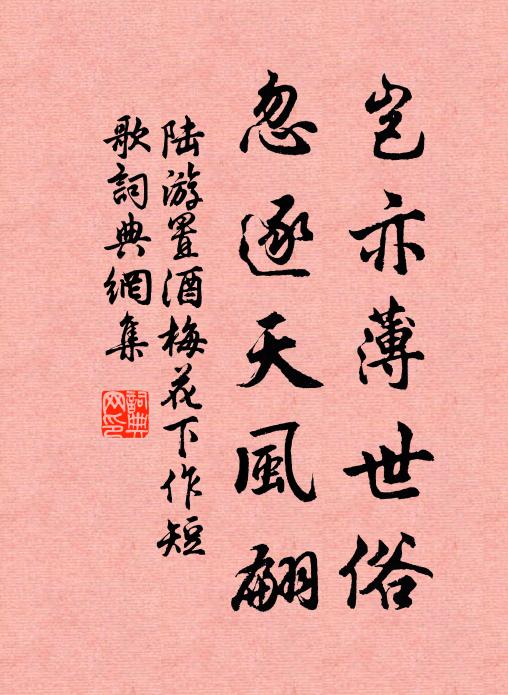 豈亦薄世俗
忽逐天風翩
陸游置酒梅花下作短
歌詞典網集
詞典网印